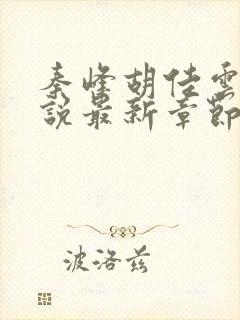 秦峰胡佳雲
說最新章節
波洛茲